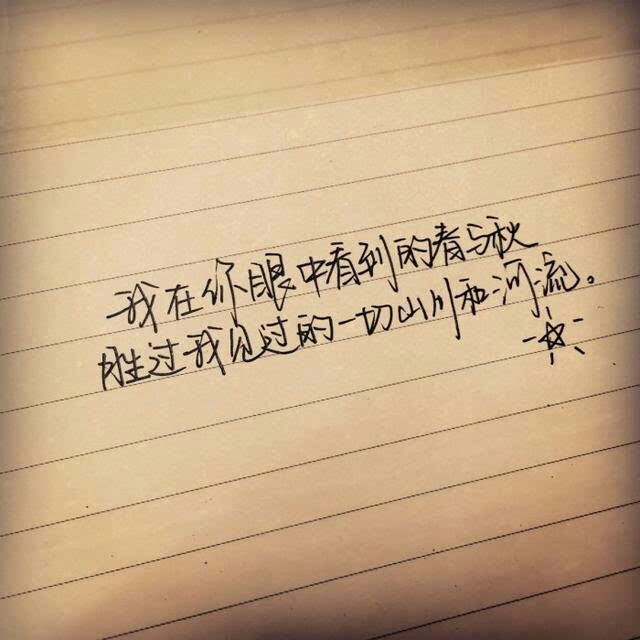 我在你眼中看到的春与秋
胜过我见过的一切山川和河流。